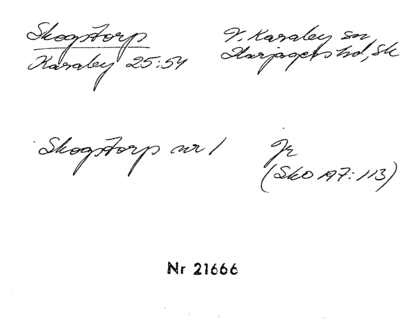 Skogstorp V. Karaby sn
Karaby 25:54 Harjagers hd, Sk
Skogstorp nr 1 Jr
(SkO A7:113)
Nr 21666